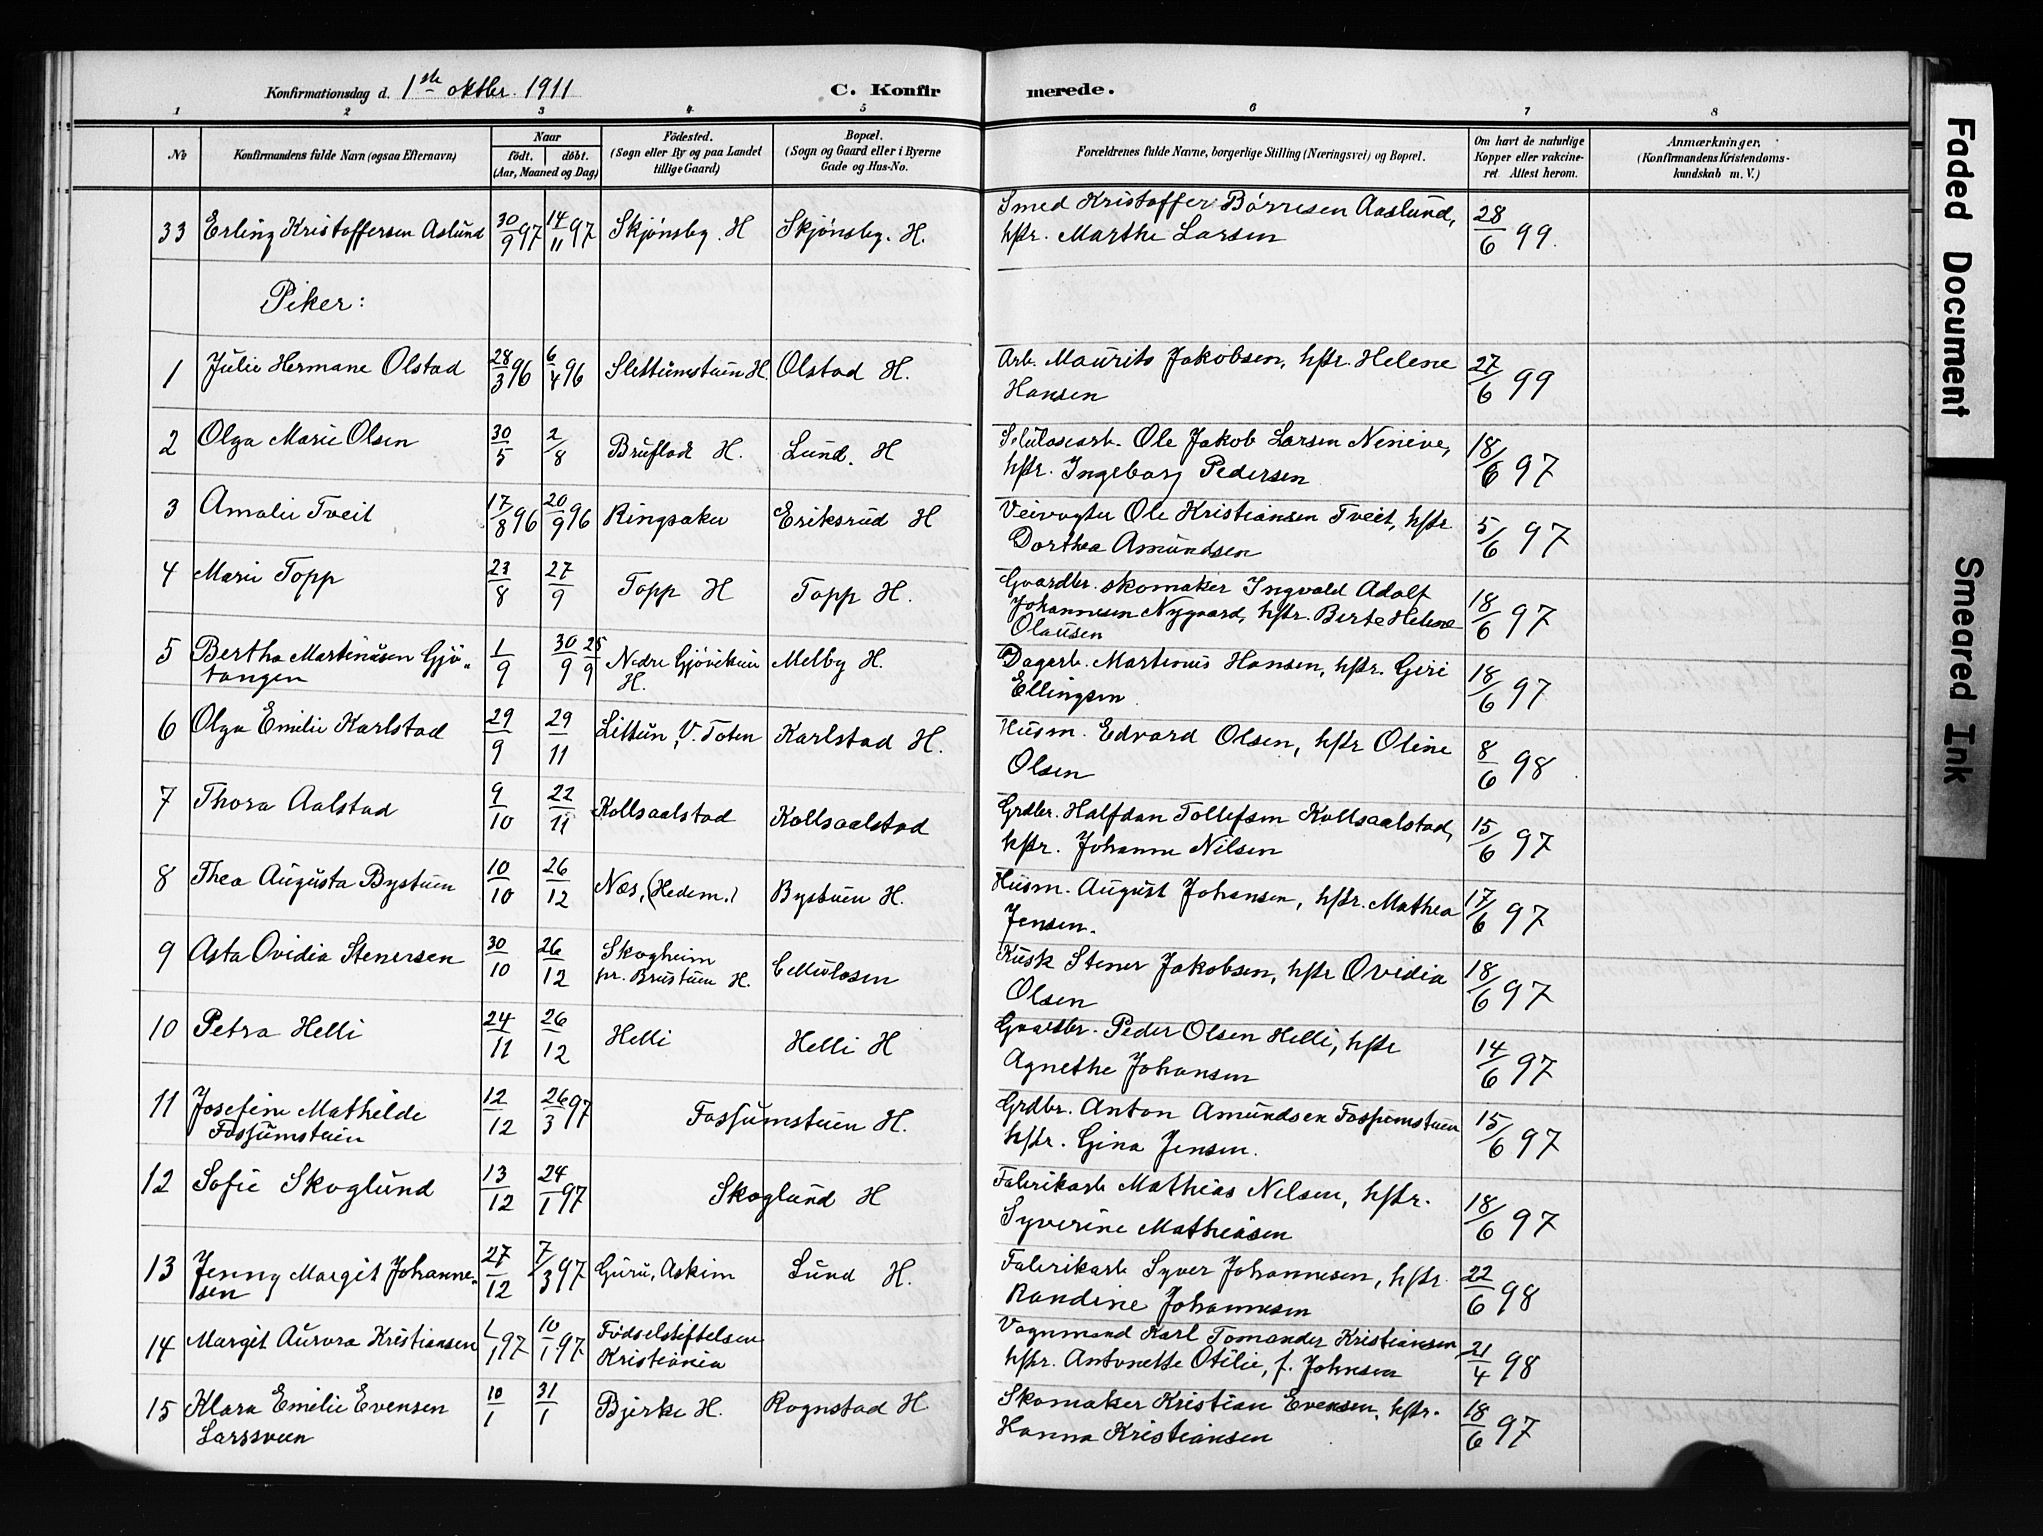 Konfirmationsdag d. 1ste oktbr. 1911
C. Konfirmerede.
1 2 3 4 5 6 7 8
No
Konfirmandens fulde Navn (ogsaa Efternavn)
Naar
født. døbt.
(Aar, Maaned og Dag)
Födested.
(Sogn eller By og paa Landet
tillige Gaard)
Bopæl.
(Sogn og Gaard eller i Byerne
Gade og Hus-No.
Forældrenes fulde Navne, borgerlige Stilling (Næringsvei) og Bopæl.
Om havt de naturlige
Kopper eller vakcine-
ret. Attest herom.
Anmærkninger,
(Konfirmandens Kristendoms-
kundskab m. V.)
33 Erling Kristoffersen Aslund 30/9 97 14/11 97 Skjønsby. H Skjønsby. H. Smed Kristoffer Børresen Aaslund, 28/6 99.
hstr. Marthe Larsen
Piker:
1 Julie Hermane Olstad 28/3 96 6/4 96 Slettumstuen H. Olstad H. Arb. Maurits Jakobsen, hstr. Helene 27/6 99
Hansen
2 Olga Marie Olsen 30/5 2/8 Brufladt H. Lund. H Selulosearb. Ole Jakob Larsen Ninive, 18/6 97
hstr. Ingeborg Pedersen
3 Amalie Tveit 17/8 96 20/9 96 Ringsaker Eriksrud H Veivogter Ole Kristiansen Tveit, hstr 5/6 97
Dorthea Amundsen
4 Marie Topp 23/8 27/9 Topp H Topp H. Gaardbr. skomaker Ingvald Adolf 18/6 97
Johannesen Nygaard, hstr. Birte Helene
Olausen
5 Bertha Martinusen Gjø- 1/9 30/9 25/9 Nedre Gjøvikeie Melby H. Dagarb. Martinus Hansen, hstr. Giri 18/6 97
tangen H. Ellingsen
6 Olga Emilie Karlstad 29/9 29/11 Littun, V. Toten Karlstad H. Husm. Edvard Olsen, hstr Oline 8/6 98
Olsen
7 Thora Aalstad 9/10 22/11 Kollsaalstad Kollsaalstad Grdbr. Halfdan Tollefsen Kollsaalstad, 15/6 97
hstr. Johanne Nilsen
8 Thea Augusta Bystuen 10/10 26/12 Nes, (Hedem.) Bystuen H. Husm. August Johansen, hstr. Mathea 17/6 97
Jensen.
9 Asta Ovidia Stenersen 30/10 26/12 Skogheim Cellulosen Kusk Stener Jakobsen, hstr Ovidia 18/6 97
pr. Brustuen H. Olsen
10 Petra Helli 24/11 26/12 Helli Helli H Gaardbr. Peder Olsen Helli, hstr 14/6 97
Agnethe Johansen
11 Josefine Mathilde 12/12 26/3 97 Fossumstuen H. Grdbr. Anton Amundsen Fossumstuen 15/6 97
Fossumstuen hstr. Gina Jensen.
12 Sofie Skoglund 13/12 24/1 97 Skoglund H Fabrikarb Mathias Nilsen, hstr. 18/6 97
Syverine Mathiasen
13 Jenny Margit Johanne- 27/12 7/3 97 Guru, Askim Lund H. Fabrikarb Syver Johannesen, hstr. 22/6 98
sen Randine Johannesen
14 Margit Aurora Kristiansen 1/1 97 10/1 97 Fødselstiftelsen Vognmand Karl Tomander Kristiansen, 21/4 98
Kristiania hstr. Antonette Otilie, f. Johnsen
15 Klara Emilie Evensen 10/1 31/1 Bjerke H. Rognstad H Skomaker Kristian Evensen, hstr. 18/6 97
Larssveen Hanna Kristiansen
Faded Document
Smeared Ink